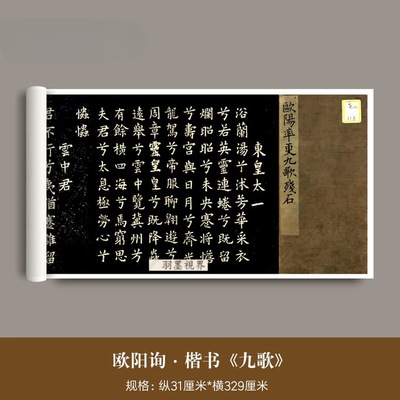 歐陽率更九歌殘石
東皇太一
浴蘭湯兮沐芳華采衣
兮若英靈連蜷兮既留
爛昭昭兮未央蹇將憺
兮壽宮與日月兮齊光
龍駕兮帝服聊翱遊兮
周章靈皇皇兮既降猋
遠舉兮雲中覽冀州兮
有餘橫四海兮焉窮思
夫君兮太息極勞心兮
𢥞𢥞
雲中君
君不行兮夷猶蹇誰留
羽墨視界
欧阳询·楷书《九歌》
规格：纵31厘米*横329厘米